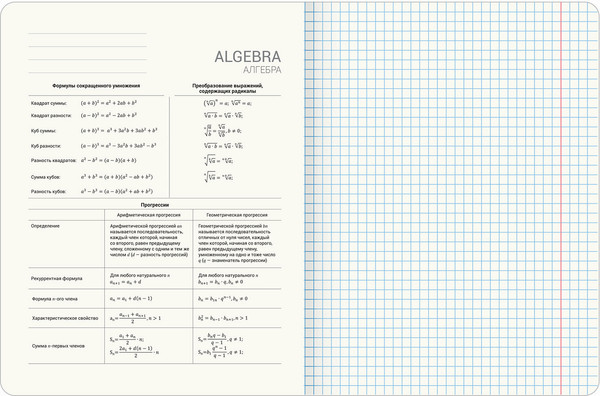 ALGEBRA
АЛГЕБРА
Формулы сокращенного умножения
Квадрат суммы: (a + b)² = a² + 2ab + b²
Квадрат разности: (a − b)² = a² − 2ab + b²
Куб суммы: (a + b)³ = a³ + 3a²b + 3ab² + b³
Куб разности: (a − b)³ = a³ − 3a²b + 3ab² − b³
Разность квадратов: a² − b² = (a − b)(a + b)
Сумма кубов: a³ + b³ = (a + b)(a² − ab + b²)
Разность кубов: a³ − b³ = (a − b)(a² + ab + b²)
Преобразование выражений,
содержащих радикалы
Прогрессии
Арифметическая прогрессия
Геометрическая прогрессия
Определение
Арифметической прогрессией an
называется последовательность,
каждый член которой, начиная
со второго, равен предыдущему
члену, сложенному с одним и тем же
числом d (d – разность прогрессий)
Геометрической прогрессией bn
называется последовательность
отличных от нуля чисел, каждый
член которой, начиная со
второго, равен предыдущему
члену, умноженному на одно и тоже число
q (q – знаменатель прогрессии)
Рекуррентная формула
Для любого натурального n
aₙ₊₁ = aₙ + d
Для любого натурального n
bₙ₊₁ = bₙ · q, bₙ ≠ 0
Формула n-ого члена
aₙ = a₁ + d(n − 1)
Характеристическое свойство
aₙ = (aₙ₋₁ + aₙ₊₁)/2, n > 1
bₙ² = bₙ₋₁ · bₙ₊₁, n > 1
Сумма n-первых членов
Sₙ = (a₁ + aₙ)/2 · n;
Sₙ = (2a₁ + d(n − 1))/2 · n
Sₙ = (bₙq − b₁)/(q − 1), q ≠ 1;
Sₙ = b₁ (qⁿ − 1)/(q − 1), q ≠ 1;